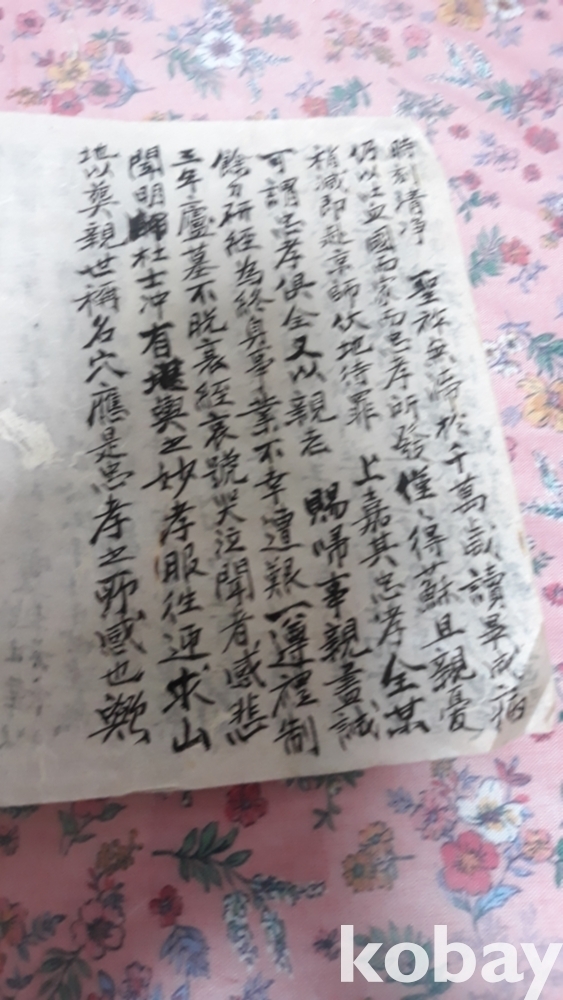 時刻清净 聖祚無啼於千萬歲讀畢成病
仍以吐血國而家而忠孝所發僅〻得蘇且親憂
稍减即赴京師伏地待罪 上嘉其忠孝全某
可謂忠孝俱全又以親志 賜啼事親盡誠
餘力研經為終身事業不幸遭艱一遵禮制
三年廬墓不脫衰絰哀號哭泣聞者感悲
聞明歸杜士冲有堪輿之妙孝服往迎求山
地以奠親世稱名穴應是忠孝之所感也歟
kobay